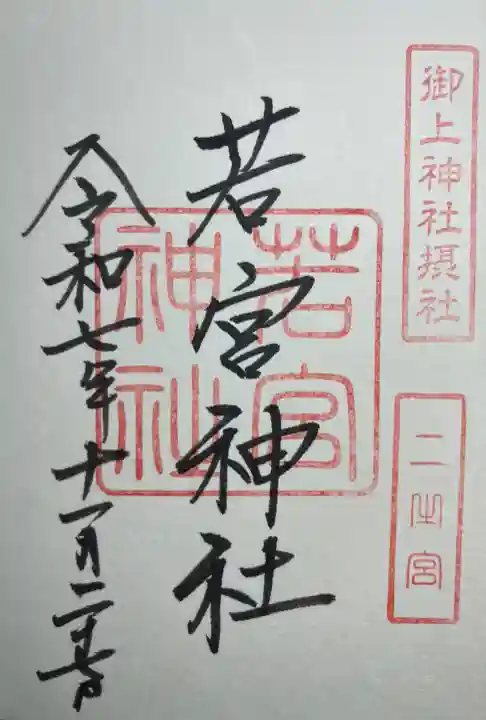 御上神社摂社
二之宮
若宮神社
若宮
神社
令和七年十一月二十七日